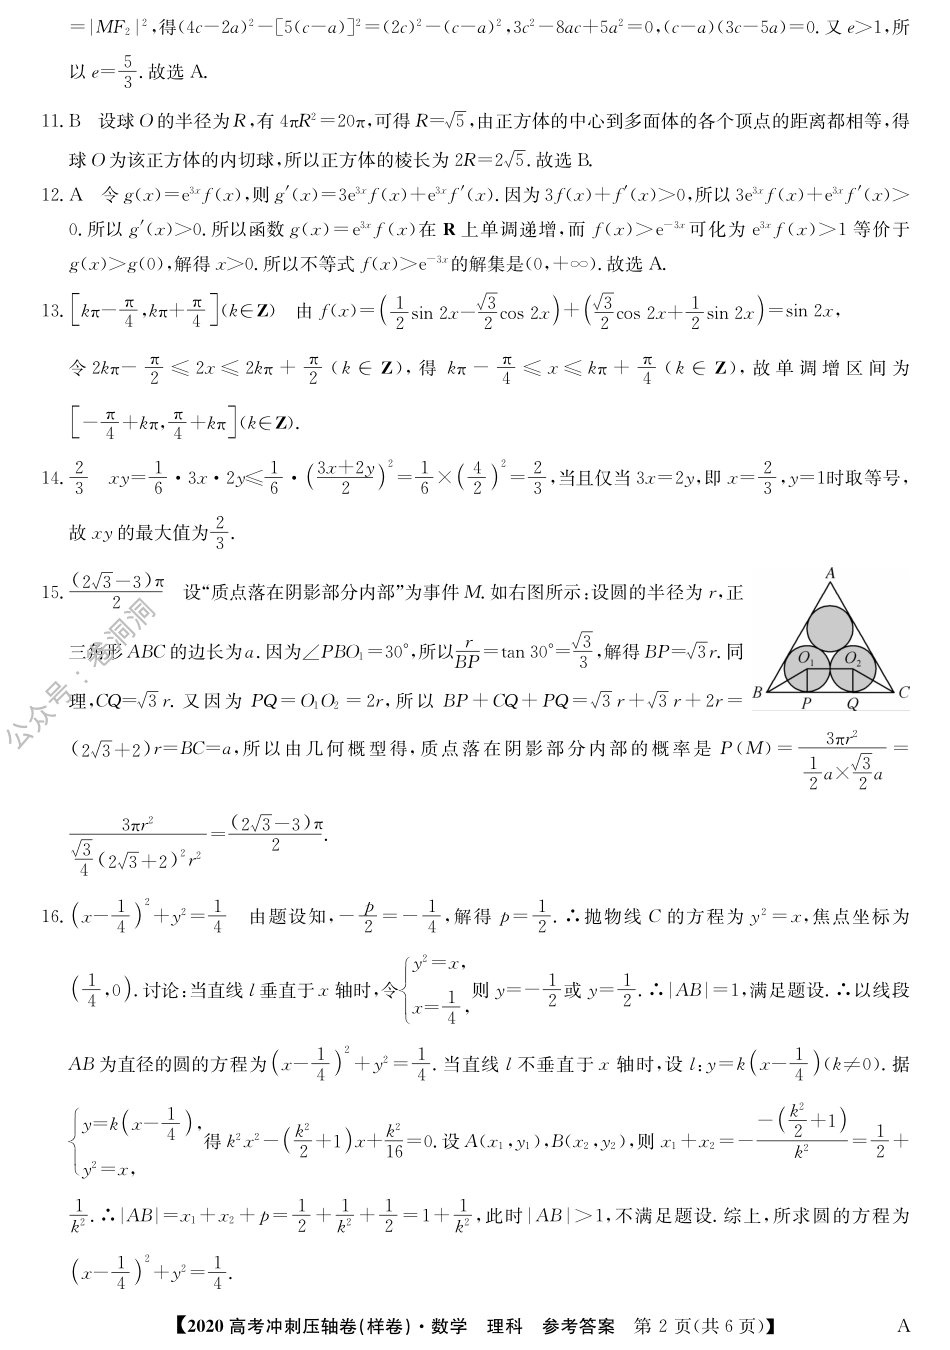 =|MF₂|²,得(4c-2a)²-[5(c-a)]²=(2c)²-(c-a)²,3c²-8ac+5a²=0,(c-a)(3c-5a)=0.又e>1,所
以e=5/3.故选A.
11. B 设球O的半径为R,有4πR²=20π,可得R=√5,由正方体的中心到多面体的各个顶点的距离都相等,得
球O为该正方体的内切球,所以正方体的棱长为2R=2√5.故选B.
12. A 令g(x)=e³ˣf(x),则g′(x)=3e³ˣf(x)+e³ˣf′(x).因为3f(x)+f′(x)>0,所以3e³ˣf(x)+e³ˣf′(x)>
0.所以g′(x)>0.所以函数g(x)=e³ˣf(x)在R上单调递增,而f(x)>e⁻³ˣ可化为e³ˣf(x)>1等价于
g(x)>g(0),解得x>0.所以不等式f(x)>e⁻³ˣ的解集是(0,+∞).故选A.
13. [kπ-π/4,kπ+π/4](k∈Z) 由f(x)=(1/2 sin 2x-√3/2 cos 2x)+(√3/2 cos 2x+1/2 sin 2x)=sin 2x,
令2kπ-π/2≤2x≤2kπ+π/2(k∈Z),得kπ-π/4≤x≤kπ+π/4(k∈Z),故单调增区间为
[-π/4+kπ,π/4+kπ](k∈Z).
14. 2/3 xy=1/6·3x·2y≤1/6·((3x+2y)/2)²=1/6×(4/2)²=2/3,当且仅当3x=2y,即x=2/3,y=1时取等号,
故xy的最大值为2/3.
15. (2√3-3)π/2 设“质点落在阴影部分内部”为事件M.如右图所示:设圆的半径为r,正
三角形ABC的边长为a.因为∠PBO₁=30°,所以r/BP=tan 30°=√3/3,解得BP=√3r.同
理,CQ=√3r.又因为PQ=O₁O₂=2r,所以BP+CQ+PQ=√3r+√3r+2r=
(2√3+2)r=BC=a,所以由几何概型得,质点落在阴影部分内部的概率是P(M)=3πr²/(1/2 a×√3/2 a)=
3πr²/(√3/4(2√3+2)²r²)=(2√3-3)π/2.
A
O₁ O₂
B C
P Q
16. (x-1/4)²+y²=1/4 由题设知,-p/2=-1/4,解得p=1/2.∴抛物线C的方程为y²=x,焦点坐标为
(1/4,0).讨论:当直线l垂直于x轴时,令{y²=x, x=1/4,则y=-1/2或y=1/2.∴|AB|=1,满足题设.∴以线段
AB为直径的圆的方程为(x-1/4)²+y²=1/4.当直线l不垂直于x轴时,设l:y=k(x-1/4)(k≠0).据
{y=k(x-1/4), y²=x,得k²x²-(k²/2+1)x+k²/16=0.设A(x₁,y₁),B(x₂,y₂),则x₁+x₂=-(-(k²/2+1))/k²=1/2+
1/k².∴|AB|=x₁+x₂+p=1/2+1/k²+1/2=1+1/k²,此时|AB|>1,不满足题设.综上,所求圆的方程为
(x-1/4)²+y²=1/4.
公众号:卷洞洞
【2020高考冲刺压轴卷(样卷)·数学 理科 参考答案 第2页(共6页)】 A